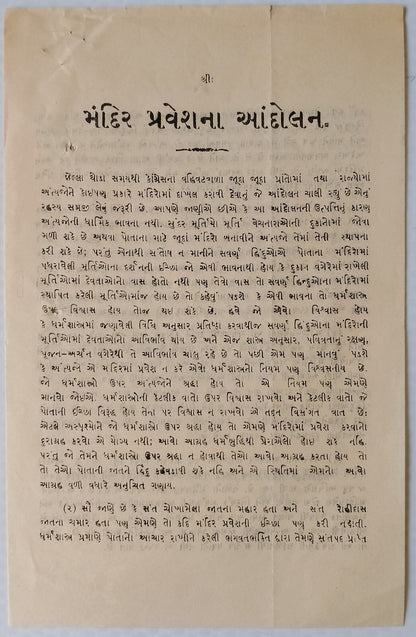 શ્રીઃ
મંદિર પ્રવેશના આંદોલન.
છેલ્લા થોડા સમયથી કોંગ્રેસના વહિવટવાળા જૂદા જૂદા પ્રાંતોમાં તથા રાજ્યોમાં
અંત્યજોને કોઇપણ પ્રકારે મંદિરોમાં દાખલ કરાવી દેવાનું જે આંદોલન ચાલી રહ્યું છે એનું
રહસ્ય સમજી લેવું જરૂરી છે. આપણે જાણીએ છીએ કે આ આંદોલનની ઉત્પત્તિનું કારણ
અંત્યજોની ધાર્મિક ભાવના નથી. સુંદર મૂર્તિઓ મૂર્તિ વેચનારાઓની દુકાનોમાં જોવા
મળી શકે છે અથવા પોતાના માટે જૂદાં મંદિરો બનાવીને અંત્યજો તેમાં તેની સ્થાપના
કરી શકે છે; પરંતુ એનાથી સંતોષ ન માનીને સવર્ણ હિંદુઓએ પોતાના મંદિરોમાં
પધરાવેલી મૂર્તિઓના દર્શનની ઇચ્છા જો એવી ભાવનાથી હોય કે દુકાન વગેરેમાં રાખેલી
મૂર્તિઓમાં દેવતાઓનો વાસ હોતો નથી પણ તેવો વાસ તો સવર્ણ હિન્દુઓના મંદિરોમાં
સ્થાપિત કરેલી મૂર્તિઓમાંજ હોય છે તો કહેવું પડશે કે એવી ભાવના તો ધર્મશાસ્ત્ર
ઉપર વિશ્વાસ હોય તોજ થઇ શકે છે. હવે જો એવો વિશ્વાસ હોય
કે ધર્મશાસ્ત્રોમાં જણાવેલી વિધિ અનુસાર પ્રતિષ્ઠા કરવાથીજ સવર્ણ હિંદુઓના મંદિરોની
મૂર્તિઓમાં દેવતાઓનો આવિર્ભાવ થાય છે અને એજ શાસ્ત્ર અનુસાર, પવિત્રતાનું રક્ષણ,
પૂજન-અર્ચન વગેરેથી તે આવિર્ભાવ ચાલુ રહે છે તો પછી એમ પણ માનવું પડશે
કે અંત્યજો એ મંદિરમાં પ્રવેશ ન કરે એવો ધર્મશાસ્ત્રોનો નિયમ પણ વિશ્વસનીય છે.
જો ધર્મશાસ્ત્રો ઉપર અંત્યજોને શ્રદ્ધા હોય તો એ નિયમ પણ એમણે
માનવો જોઇએ. ધર્મશાસ્ત્રોની કેટલીક વાતો ઉપર વિશ્વાસ રાખવો અને કેટલીક વાતો જે
પોતાની ઇચ્છા વિરૂદ્ધ હોય તેના પર વિશ્વાસ ન રાખવો એ તદ્દન વિસંગત વાત છેઃ
એટલે અસ્પૃશ્યોને જો ધર્મશાસ્ત્રો ઉપર શ્રદ્ધા હોય તો એમણે મંદિરોમાં પ્રવેશ કરવાનો
દુરાગ્રહ કરવો એ યોગ્ય નથી; આવો આગ્રહ ધર્મબુદ્ધિથી પ્રેરાએલો હોઇ શકે નહિ.
પરંતુ જો તેમને ધર્મશાસ્ત્રો ઉપર શ્રદ્ધા ન હોવાથી તેઓ આવો આગ્રહ કરતા હોય તો
તો તેઓ પોતાની જાતને હિંદુ કહેવડાવી શકે નહિ અને એ સ્થિતિમાં એમનો આવો
આગ્રહ વળી વધારે અનુચિત ગણાય.
(૨) સૌ જાણે છે કે સંત ચોખામેલા જાતના મહાર હતા અને સંત રોહીદાસ
જાતના ચમાર હતા પણ એમણે તો કદિ મંદિર પ્રવેશની ઇચ્છા પણ કરી નહોતી.
ધર્મશાસ્ત્ર પ્રમાણે પોતાનો આચાર રાખીને કરેલી ભગવતભક્તિ દ્વારા તેમણે સંતપદ પ્રાપ્ત